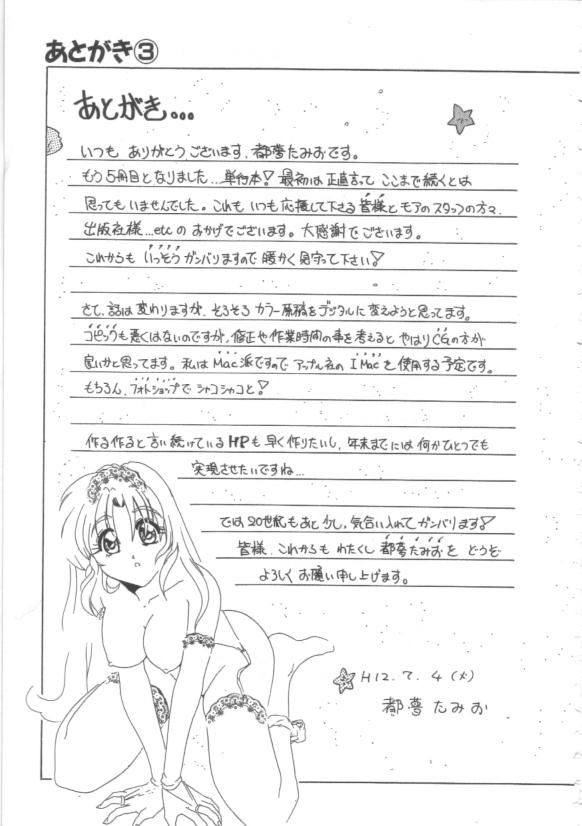 あとがき③
あとがき...
いつも ありがとうございます、都夢たみおです。
もう5冊目となりました...単行本! 最初は正直言って ここまで続くとは
思ってもいませんでした。これも いつも応援して下さる 皆様と モアのスタッフの方々、
出版社様...etcの おかげでございます。大感謝でございます。
これからも いっそう ガンバリますので 暖かく見守って下さい!
さて、話は変わりますが、そろそろ カラー原稿をデジタルに変えようと思ってます。
コピックも悪くはないのですが、修正や作業時間の事を考えると やはりCGの方が
良いかと思ってます。私はMac派ですので アップル社の IMacを使用する予定です。
もちろん、フォトショップで シャコシャコと!
作る作ると言い続けている HPも 早く作りたいし、年末までには何かひとつでも
実現させたいですね...
では 20世紀もあと少し、気合い入れて ガンバリます!
皆様、これからも わたくし 都夢たみおを どうぞ
よろしく お願い申し上げます。
H12.7.4(火)
都夢たみお